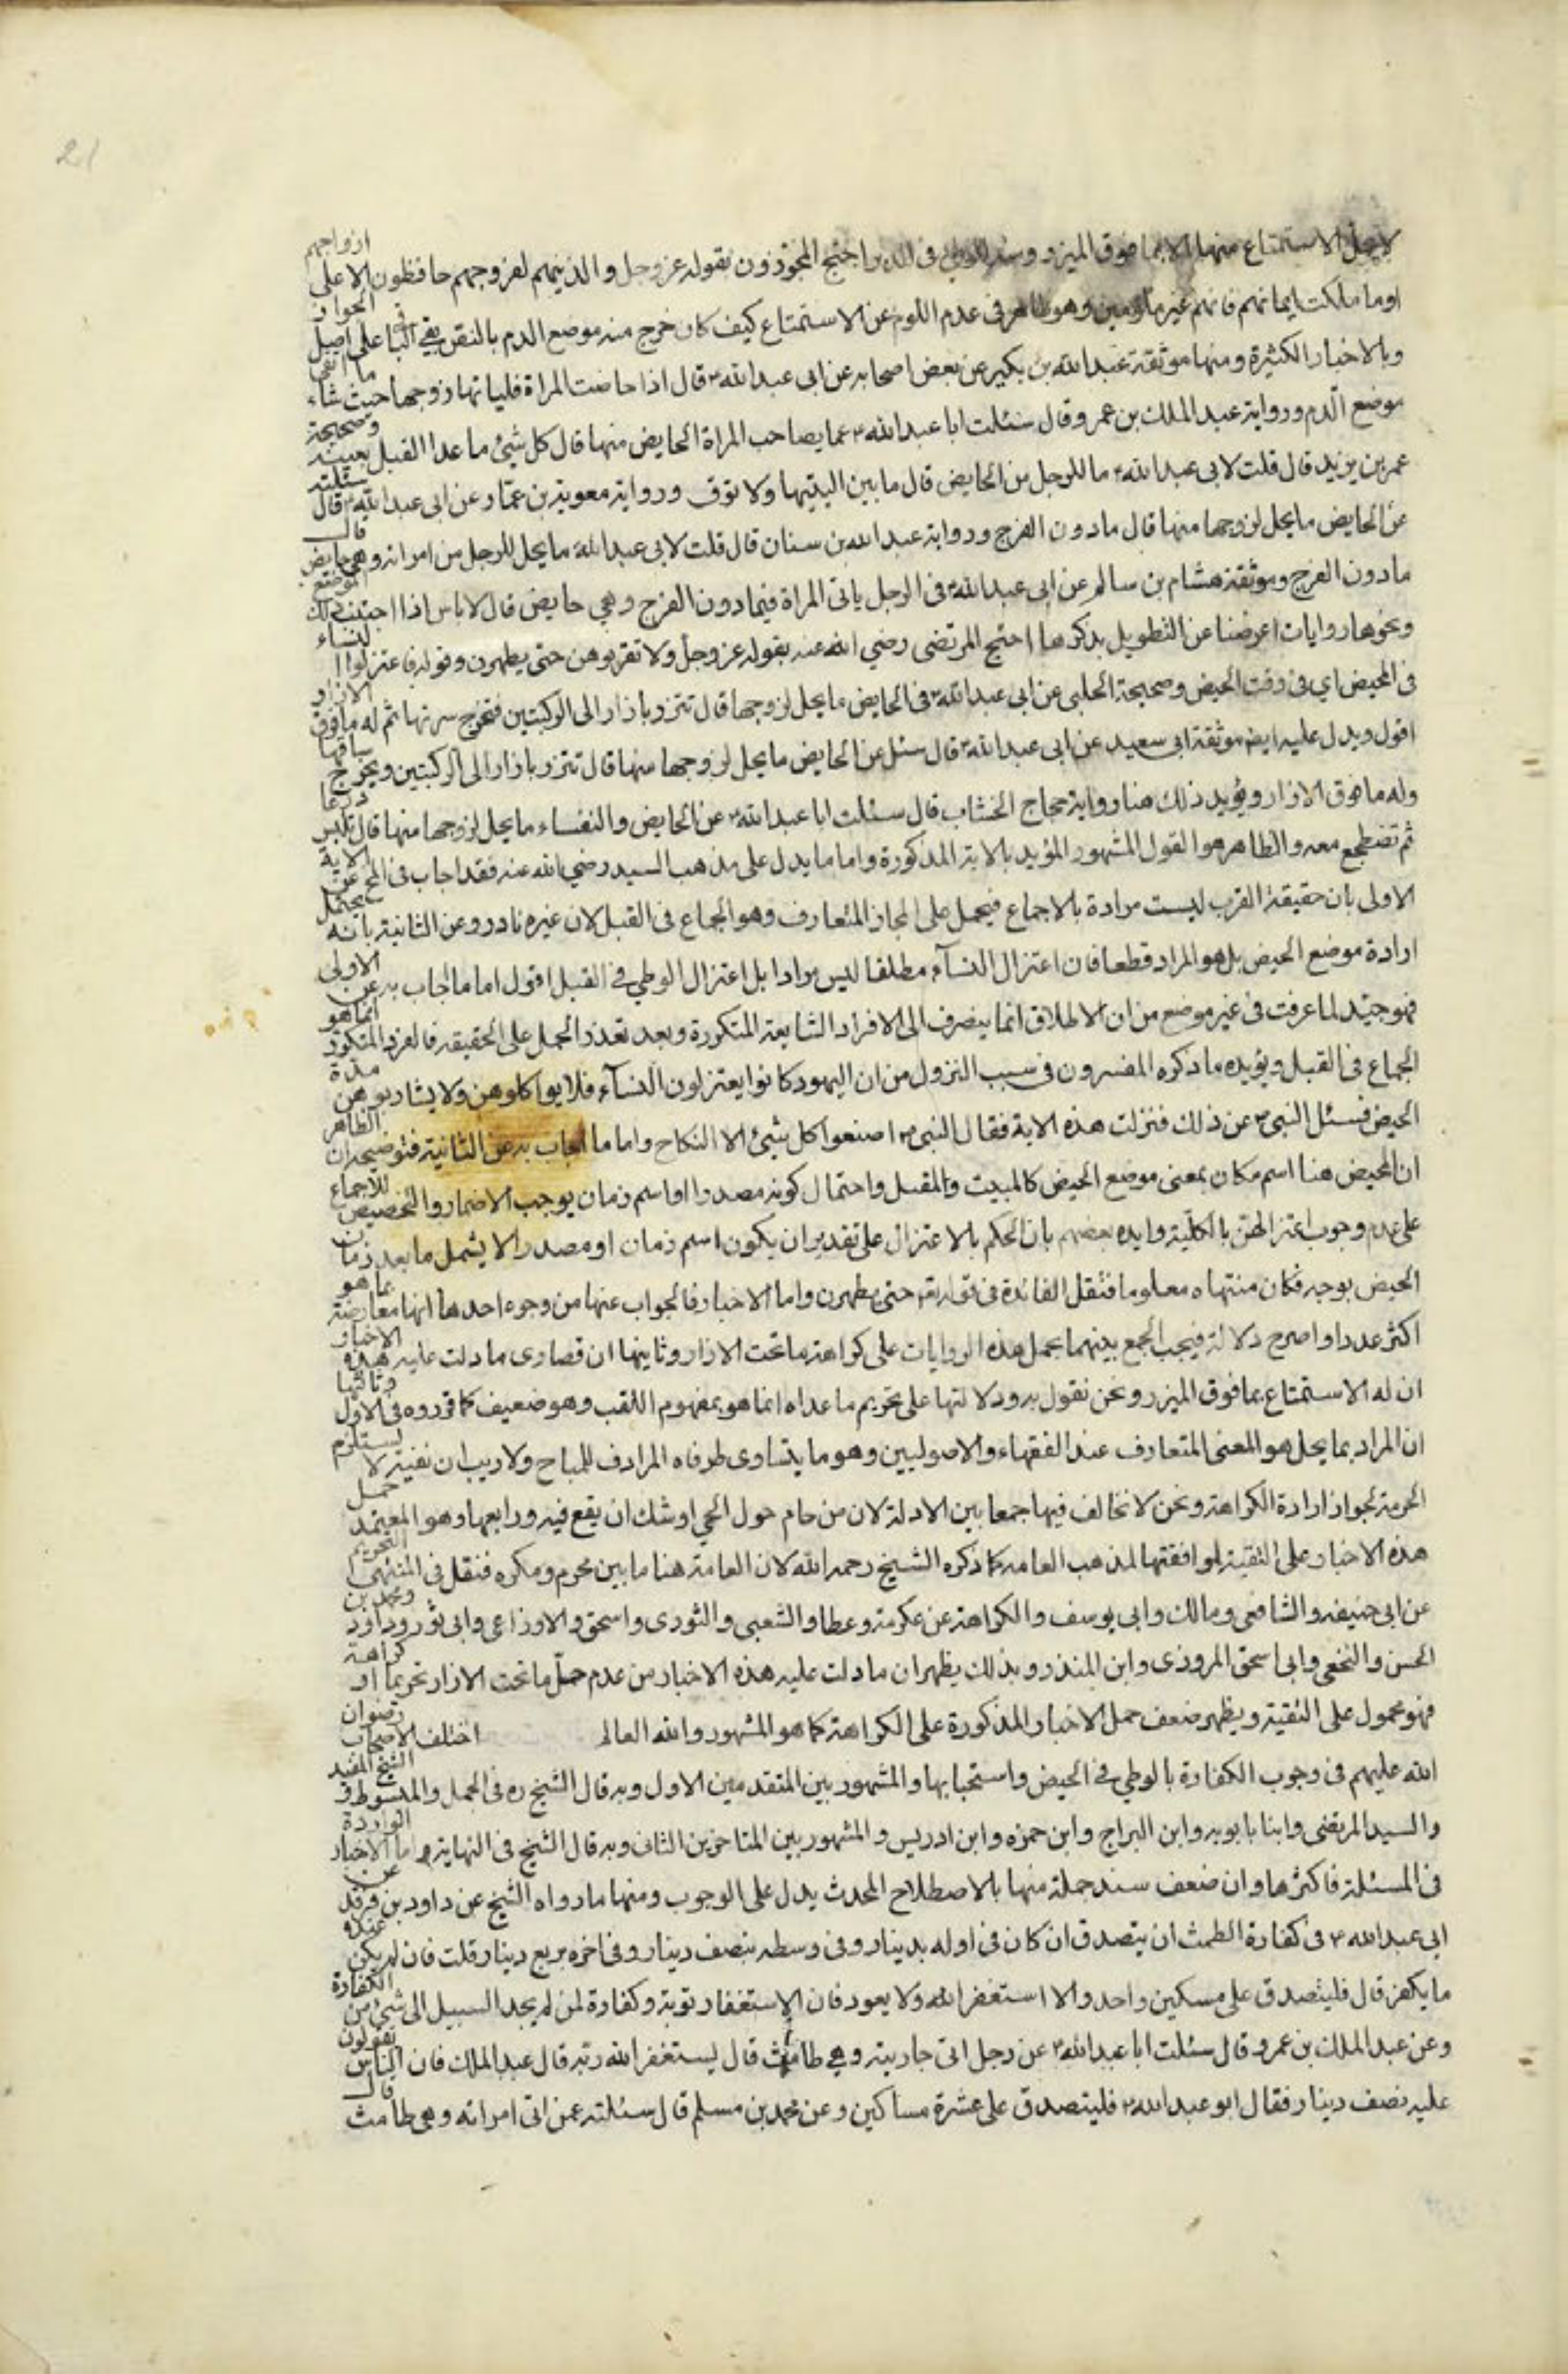 لا يحل الاستمتاع منها الا بما فوق الميزر وسند الوطي في الدبر احتج المجوزون بقوله عز وجل والذينهم لفروجهم حافظون الا على ازواجهم
او ما ملكت ايمانهم فانهم غير ملومين وهو ظاهر في عدم اللوم عن الاستمتاع كيف كان خرج منه موضع الدم بالنص بقي الباقي على اصل الجواز
وبالاخبار الكثيرة ومنها موثقة عبد الله بن بكير عن بعض اصحابه عن ابي عبد الله ع قال اذا حاضت المراة فلياتها زوجها حيث شاء ما اتقى
موضع الدم ورواية عبد الملك بن عمرو قال سئلت ابا عبد الله ع عما يصاحب المراة الحايض منها قال كل شيئ ما عدا القبل بعينه وصحيحة
عمر بن يزيد قال قلت لابي عبد الله ع ما للرجل من الحايض قال ما بين اليتيها ولا يوقب ورواية معوية بن عمار عن ابي عبد الله ع قال سئلته
عن الحايض ما يحل لزوجها منها قال ما دون الفرج ورواية عبد الله بن سنان قال قلت لابي عبد الله ع ما يحل للرجل من امراته وهي حايض قال
ما دون الفرج وموثقة هشام بن سالم عن ابي عبد الله ع في الرجل ياتي المراة فيما دون الفرج وهي حايض قال لا باس اذا اجتنب ذلك الموضع
ونحوها روايات اعرضنا عن التطويل بذكرها احتج المرتضى رضي الله عنه بقوله عز وجل ولا تقربوهن حتى يطهرن وقوله فاعتزلوا النساء
في المحيض اي في وقت الحيض وصحيحة الحلبي عن ابي عبد الله ع في الحايض ما يحل لزوجها قال تتزر بازار الى الركبتين فتخرج سرتها ثم له ما فوق الازار و
اقول ويدل عليه ايضا موثقة ابي سعيد عن ابي عبد الله ع قال سئل عن الحايض ما يحل لزوجها منها قال تتزر بازار الى الركبتين ويخرج ساقها
وله ما فوق الازار ويؤيد ذلك هنا رواية حجاج الخشاب قال سئلت ابا عبد الله ع عن الحايض والنفساء ما يحل لزوجها منها قال تلبس درعا
ثم تضطجع معه والظاهر هو القول المشهور المؤيد بالاية المذكورة واما ما يدل على مذهب السيد رضي الله عنه فقد اجاب في المخ عن الاية
الاولى بان حقيقة القرب ليست مرادة بالاجماع فيحمل على المجاز المتعارف وهو الجماع في القبل لان غيره نادر وعن الثانية بانه يحتمل
ارادة موضع الحيض بل هو المراد قطعا فان اعتزال النسآء مطلقا ليس مرادا بل اعتزال الوطي في القبل اقول اما ما اجاب به عن الاولى
فهو جيد لما عرفت في غير موضع من ان الاطلاق انما ينصرف الى الافراد الشايعة المتكررة وبعد تعذر الحمل على الحقيقه فالفرد المتكرر انما هو
الجماع في القبل ويؤيده ما ذكره المفسرون في سبب النزول من ان اليهود كانوا يعتزلون النسآء فلا يواكلوهن ولا يشاربوهن مدة
الحيض فسئل النبي ص عن ذلك فنزلت هذه الاية فقال النبي ص اصنعوا كل شيئ الا النكاح واما ما اجاب به عن الثانية فتوضيحه ان الظاهر
ان المحيض هنا اسم مكان بمعنى موضع الحيض كالمبيت والمقيل واحتمال كونه مصدرا او اسم زمان يوجب الاضمار والتخصيص للاجماع
على عدم وجوب اعتزالهن بالكلية وايده بعضهم بان الحكم بالاعتزال على تقدير ان يكون اسم زمان او مصدرا لا يشمل ما بعد زمان
الحيض بوجه فكان منتهاه معلوما فتقل الفائدة في قوله تع حتى يطهرن واما الاخبار فالجواب عنها من وجوه احدها انها معارضة بما هو
اكثر عددا واصرح دلالة فيجب الجمع بينهما بحمل هذه الروايات على كراهة ما تحت الازار وثانيها ان قصارى ما دلت عليه هذه الاخبار
ان له الاستمتاع بما فوق الميزر ونحن نقول به ودلالتها على تحريم ما عداه انما هو بمفهوم اللقب وهو ضعيف كما قرروه في الاول وثالثها
ان المراد بما يحل هو المعنى المتعارف عند الفقهاء والاصوليين وهو ما يتساوى طرفاه المرادف للمباح ولا ريب ان نفيه لا يستلزم
الحرمة لجواز ارادة الكراهة ونحن لا نخالف فيها جمعا بين الادلة لان من حام حول الحمى اوشك ان يقع فيه ورابعها وهو المعتمد حمل
هذه الاخبار على التقية لموافقتها لمذهب العامه كما ذكره الشيخ رحمه الله لان العامة هنا ما بين محرم ومكره فنقل في المنتهى التحريم
عن ابي حنيفه والشافعي ومالك وابي يوسف والكراهة عن عكرمة وعطا والشعبي والثوري واسحق والاوزاعي وابي ثور وداود ومحمد بن
الحسن والنخعي وابي اسحق المروزي وابن المنذر وبذلك يظهر ان ما دلت عليه هذه الاخبار من عدم حل ما تحت الازار تحريما او كراهة
فهو محمول على التقية ويظهر ضعف حمل الاخبار المذكورة على الكراهة كما هو المشهور والله العالم اختلف الاصحاب رضوان
الله عليهم في وجوب الكفارة بالوطي في الحيض واستحبابها والمشهور بين المتقدمين الاول وبه قال الشيخ ره في الجمل والمبسوط و الشيخ المفيد
والسيد المرتضى وابنا بابويه وابن البراج وابن حمزه وابن ادريس والمشهور بين المتاخرين الثاني وبه قال الشيخ في النهاية واما الاخبار الواردة
في المسئلة فاكثرها وان ضعف سند جملة منها بالاصطلاح المحدث يدل على الوجوب ومنها ما رواه الشيخ عن داود بن فرقد عن
ابي عبد الله ع في كفارة الطمث ان يتصدق ان كان في اوله بدينار وفي وسطه بنصف دينار وفي اخره بربع دينار قلت فان لم يكن عنده
ما يكفر قال فليتصدق على مسكين واحد والا استغفر الله ولا يعود فان الاستغفار توبة وكفارة لمن لم يجد السبيل الى شيئ من الكفارة
وعن عبد الملك بن عمرو قال سئلت ابا عبد الله ع عن رجل اتى جاريته وهي طامث قال يستغفر الله ربه قال عبد الملك فان الناس يقولون
عليه نصف دينار فقال ابو عبد الله ع فليتصدق على عشرة مساكين وعن محمد بن مسلم قال سئلته عمن اتى امراته وهي طامث قال
21